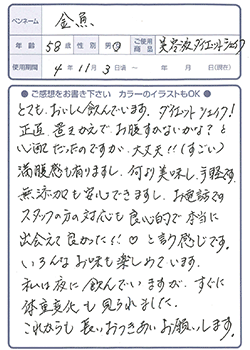 ペンネーム 金魚
年齢 58歳 性別 男・女 ご使用商品 美容液ダイエットシェイク
使用期間 4年11月3日頃 ～ 年 月 日頃
● ご感想をお書き下さい カラーのイラストもOK ●
とても、おいしく飲んでいます。ダイエットシェイク!
正直、置きかえで、お腹すかないかな? と
心配だったのですが、大丈夫!! (すごい)
満腹感も有りますし、何より美味し、手軽です。
無添加も安心できますし、お電話で
スタッフの方の対応も良心的で本当に
出会えて良かった!! ♡ と言う感じです。
いろんなお味も楽しめています。
私は夜に飲んでいますが、すぐに
体重変化も見られました。
これからも長いおつきあいお願いします。